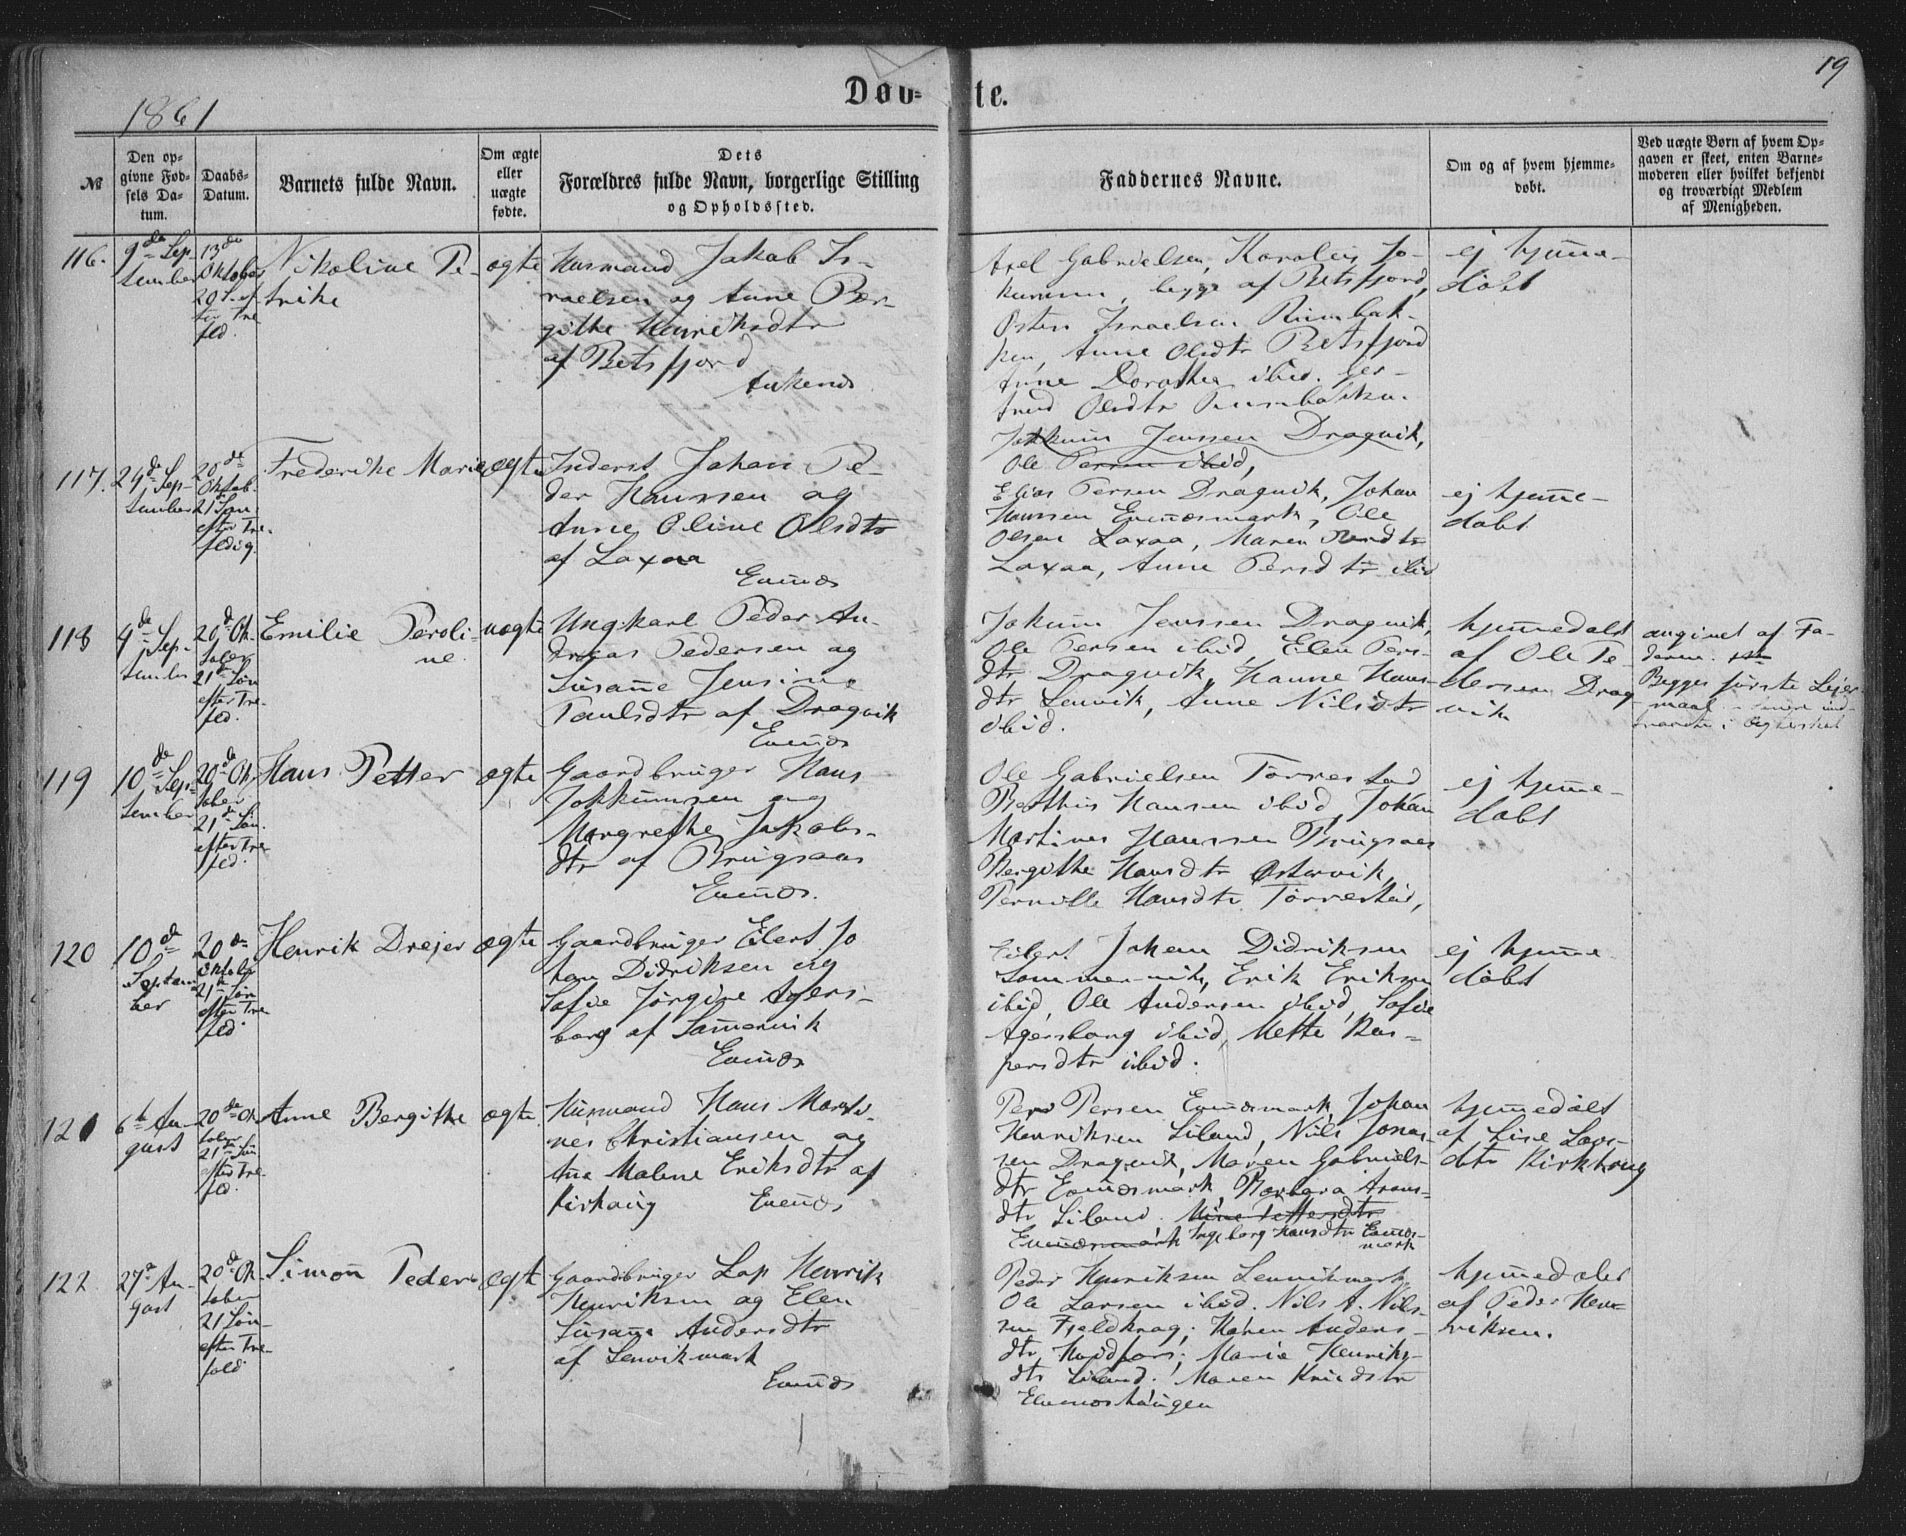 1861
Døb-
te.
19
№
Den op-
givne Fød-
sels Da-
tum.
Daabs-
Datum.
Barnets fulde Navn.
Om ægte
eller
uægte
fødte.
Dets
Forældres fulde Navn, borgerlige Stilling
og Opholdssted.
Faddernes Navne.
Om og af hvem hjemme-
døbt.
Ved uægte Børn af hvem Op-
gaven er skeet, enten Barne-
moderen eller hvilket bekjendt
og troværdigt Medlem
af Menigheden.
116.
9de Sep-
tember
13de
Oktober
20 S. ef
ter Tre
fld.
Nikoline Pe-
trike
ægte
Husmand Jakob Is-
raelsen og Anne Ber-
githe Henriksdtr
af Betsfjord
Ankenes
Axel Gabrielsen, Karolius Jo-
kumsen, begge af Betsfjord,
Østen Israelsen Rumbak-
ken, Anne Olsdtr Betsfjord
Anne Dorothea ibid. Ger-
trud Olsdtr Rumbakken.
ej hjem̄e-
døbt
117.
24de Sep-
tember
20de
Oktob.
21 Søn.
efter Tre-
foldig.
Frederike Marie
ægte
Inderst Johan Pe-
der Hanssen og
Anne Oline Olsdtr
af Laxaa
Evenæs
Jokkum Jenssen Dragvik,
Ole Persen ibid,
Elias Persen Dragvik, Johan
Hanssen Evenæsmark, Ole
Olsen Laxaa, Maren
Laxaa, Anne Persdtr ibid
ej hjem̄e-
døbt
118
4de Sep-
tember
20de Ok-
tober
21de Søn
efter Tre-
fld.
Emilie Peroli-
ne.
uægte
Ungkarl Peder An-
dreas Pedersen og
Susan̄e Jensine
Paulsdtr af Dragvik
Evenæs
Jokum Jenssen Dragvik,
Ole Persen ibid, Elen Pers-
dtr Dragvik, Hanne Hans-
dtr Lenvik, Anne Nilsdtr
ibid.
hjem̄edøbt
af Ole Pe-
dersen Drag
vik
angivet af Fa-
deren.
Begges første Leier-
maal - senere ind-
traadte i Ægteskab
119
10de Sep-
tember
20de Ok-
tober
21de Søn.
efter Tre-
fld.
Hans Petter
ægte
Gaardbruger Hans
Jokkumsen og
Margrethe Jakobs-
dtr af Trugsaas
Evenæs.
Ole Gabrielsen Tørrestad
Berthius Hansen ibid, Johan
Martinus Hanssen Trugsaas
Bergithe Hansdtr Østervik,
Pernille Hansdtr Tørrestad,
ej hjem̄e-
døbt
120
10de
Septem-
ber
20de
Oktober
21de Søn
efter Tre
fld.
Henrik Drejer
ægte
Gaardbruger Eilert Jo
han Didriksen og
Sofie Jørgine Agers-
borg af Sam̄ervik
Evenæs
Eilert Johan Didriksen
Sommervik, Erik Eriksen
ibid, Ole Andersen ibid, Sofie
Agersborg ibid, Mette Kas-
persdtr ibid.
ej hjem̄e-
døbt
121
6te Au-
gust
20de Ok
tober
21de Søn
efter Tre-
fld.
Anne Bergithe
ægte
Husmand Hans Marti-
nus Christiansen og
Ane Malene Eriksdtr af
Kirkhaug
Evenæs
Per Persen Evenæsmark, Johan
Henriksen Liland, Nils Jonas-
sen Dragvik, Maren Gabriels-
dtr Evenæsmark, Barbara Arons-
dtr Liland.
Evenæsmark Ingeborg Hansdtr Evenæs-
mark
hjem̄edøbt
af Lise Lars-
dtr Kirkhaug
122
27de Au-
gust
20de Ok-
tober
21 Søn-
efter Tre-
fold
Simon Peder
ægte
Gaardbruger Lap Henrik
Henriksen og Elen
Susan̄e Andersdtr
af Lenvikmark
Evenæs
Peder Henriksen Lenvikmark
Ole Larsen ibid. Nils A. Nils-
sen Fjeldkrog; Karen Anders-
dtr; Marie Henriks-
dtr Liland. Maren Knudsdtr
Evenæshaugen
hjem̄edøbt
af Peder Hen-
riksen.